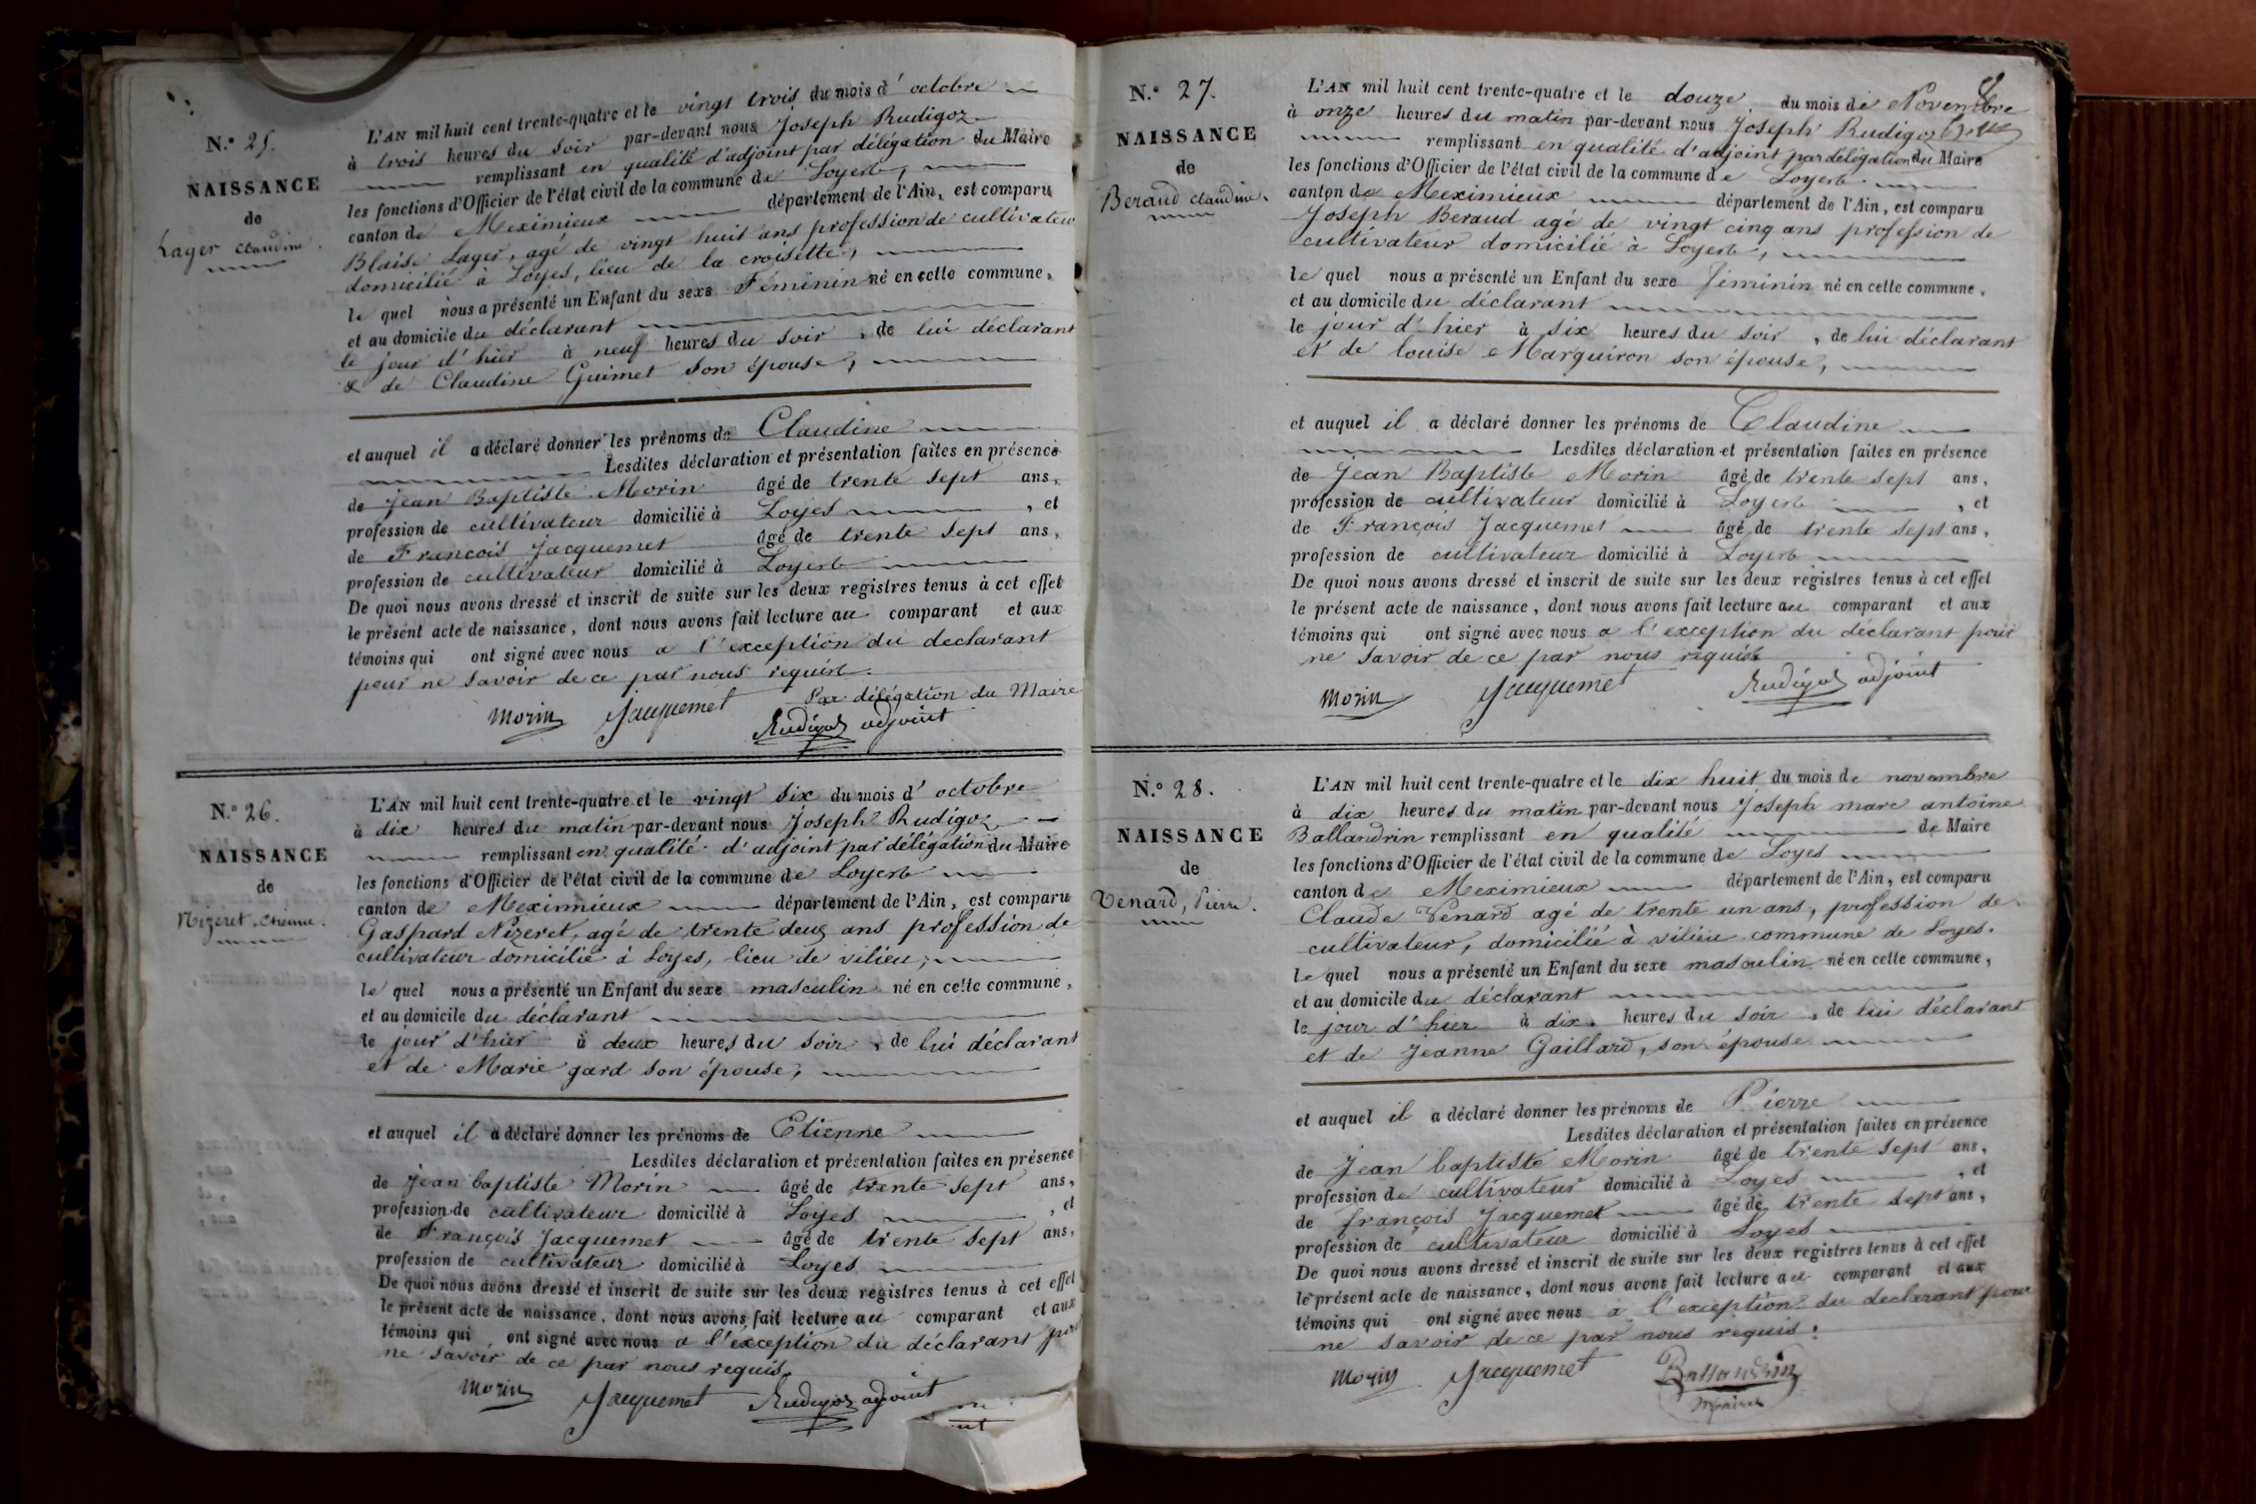 N.° 25.
NAISSANCE
de
Lager Claudine.
L'AN mil huit cent trente-quatre et le vingt trois du mois d'octobre
à trois heures du soir par-devant nous Joseph Rudigoz
remplissant en qualité d'adjoint par délégation du Maire
les fonctions d'Officier de l'état civil de la commune de Loyes,
canton de Meximieux département de l'Ain, est comparu
Blaise Lager, agé de vingt huit ans profession de cultivateur
domicilié à Loyes, lieu de la croisette,
le quel nous a présenté un Enfant du sexe Féminin né en cette commune,
et au domicile du déclarant
le jour d'hier à neuf heures du soir, de lui déclarant
& de Claudine Guimet son épouse,
et auquel il a déclaré donner les prénoms de Claudine
Lesdites déclaration et présentation faites en présence
de Jean Baptiste Morin âgé de trente sept ans,
profession de cultivateur domicilié à Loyes, et
de François Jacquemet âgé de trente sept ans,
profession de cultivateur domicilié à Loyes
De quoi nous avons dressé et inscrit de suite sur les deux registres tenus à cet effet
le présent acte de naissance, dont nous avons fait lecture au comparant et aux
témoins qui ont signé avec nous a l'exception du declarant
pour ne savoir de ce par nous requis.
Par délégation du Maire
Morin Jacquemet Rudigoz adjoint
N.° 26.
NAISSANCE
de
Nizeret, Etienne.
L'AN mil huit cent trente-quatre et le vingt six du mois d'octobre
à dix heures du matin par-devant nous Joseph Rudigoz
remplissant en qualité d'adjoint par délégation du Maire
les fonctions d'Officier de l'état civil de la commune de Loyes
canton de Meximieux département de l'Ain, est comparu
Gaspard Nizeret, agé de trente deux ans profession de
cultivateur domicilié à Loyes, lieu de vilieu,
le quel nous a présenté un Enfant du sexe masculin né en cette commune,
et au domicile du déclarant
le jour d'hier à deux heures du soir, de lui déclarant
et de Marie gard son épouse,
et auquel il a déclaré donner les prénoms de Etienne
Lesdites déclaration et présentation faites en présence
de Jean baptiste Morin âgé de trente sept ans,
profession de cultivateur domicilié à Loyes, et
de François Jacquemet âgé de trente sept ans,
profession de cultivateur domicilié à Loyes
De quoi nous avons dressé et inscrit de suite sur les deux registres tenus à cet effet
le présent acte de naissance, dont nous avons fait lecture au comparant et aux
témoins qui ont signé avec nous a l'exception du déclarant pour
ne savoir de ce par nous requis.
Morin Jacquemet Rudigoz adjoint
N.° 27.
NAISSANCE
de
Beraud Claudine.
L'AN mil huit cent trente-quatre et le douze du mois de Novembre
à onze heures du matin par-devant nous Joseph Rudigoz
remplissant en qualité d'adjoint par délégation du Maire
les fonctions d'Officier de l'état civil de la commune de Loyes
canton de Meximieux département de l'Ain, est comparu
Joseph Beraud agé de vingt cinq ans profession de
cultivateur domicilié à Loyes,
le quel nous a présenté un Enfant du sexe Féminin né en cette commune,
et au domicile du déclarant
le jour d'hier à six heures du soir, de lui déclarant
et de louise Marguiron son épouse,
et auquel il a déclaré donner les prénoms de Claudine
Lesdites déclaration et présentation faites en présence
de Jean Baptiste Morin âgé de trente sept ans,
profession de cultivateur domicilié à Loyes, et
de François Jacquemet âgé de trente sept ans,
profession de cultivateur domicilié à Loyes
De quoi nous avons dressé et inscrit de suite sur les deux registres tenus à cet effet
le présent acte de naissance, dont nous avons fait lecture au comparant et aux
témoins qui ont signé avec nous a l'exception du déclarant pour
ne savoir de ce par nous requis
Morin Jacquemet Rudigoz adjoint
N.° 28.
NAISSANCE
de
Venard, Pierre.
L'AN mil huit cent trente-quatre et le dix huit du mois de novembre
à dix heures du matin par-devant nous Joseph marc antoine
Ballandrin remplissant en qualité de Maire
les fonctions d'Officier de l'état civil de la commune de Loyes
canton de Meximieux département de l'Ain, est comparu
Claude Venard agé de trente un ans, profession de
cultivateur, domicilié à vilieu commune de Loyes.
le quel nous a présenté un Enfant du sexe masculin né en cette commune,
et au domicile du déclarant
le jour d'hier à dix heures du soir, de lui déclarant
et de Jeanne Gaillard, son épouse
et auquel il a déclaré donner les prénoms de Pierre
Lesdites déclaration et présentation faites en présence
de Jean baptiste Morin âgé de trente sept ans,
profession de cultivateur domicilié à Loyes, et
de françois Jacquemet âgé de trente sept ans,
profession de cultivateur domicilié à Loyes
De quoi nous avons dressé et inscrit de suite sur les deux registres tenus à cet effet
le présent acte de naissance, dont nous avons fait lecture au comparant et aux
témoins qui ont signé avec nous a l'exception du declarant pour
ne savoir de ce par nous requis.
Morin Jacquemet Ballandrin